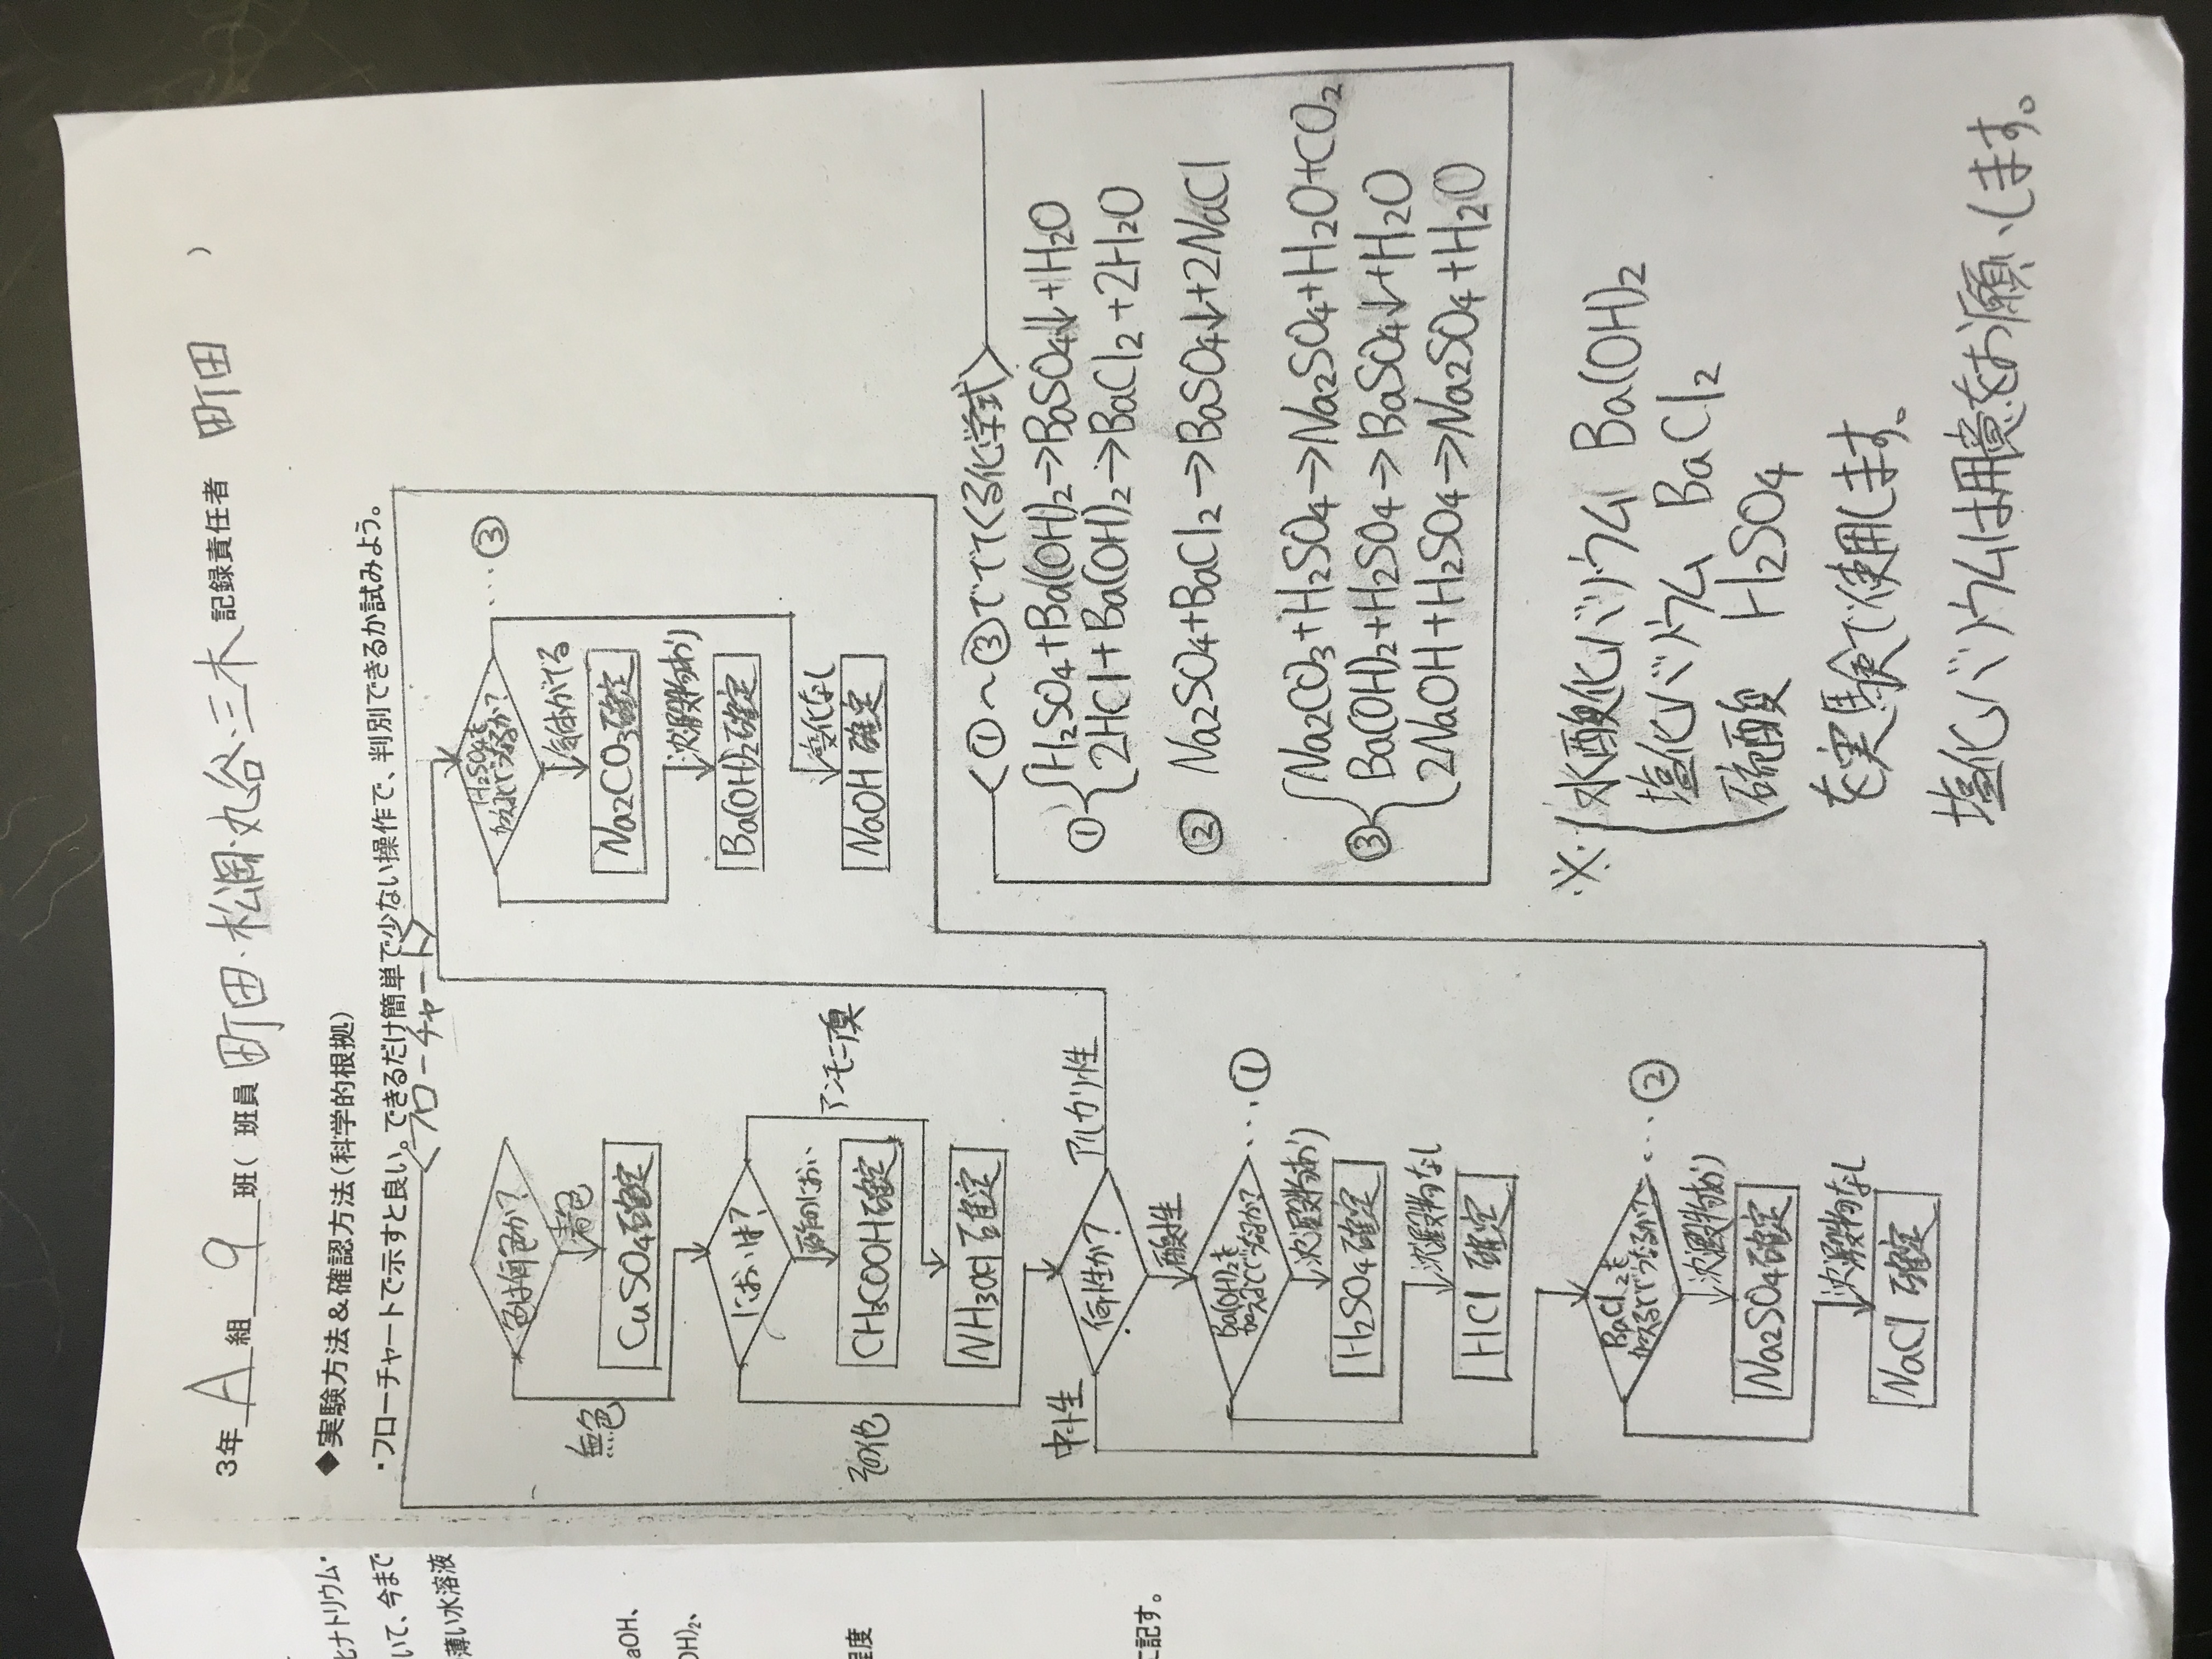 3年 A 組 9 班( 班員 町田・松岡・丸谷・三木 記録責任者 町田 )
◆実験方法&確認方法(科学的根拠)
・フローチャートで示すと良い。できるだけ簡単で少ない操作で、判別できるか試みよう。
<フローチャート>
色は何色か?
青色
無色
CuSO4確定
においは?
酢のにおい
アンモニア臭
その他
CH3COOH確定
確定
中性
何性か?
アルカリ性
酸性
Ba(OH)2を
加えるとどうなるか?
…①
沈澱物あり
H2SO4確定
沈澱物なし
HCl 確定
BaCl2を
加えるとどうなるか?
…②
沈澱物あり
Na2SO4確定
沈澱物なし
NaCl 確定
H2SO4を
加えるとどうなるか?
…③
気体がでる
Na2CO3確定
沈澱物あり
Ba(OH)2確定
変化なし
NaOH 確定
<①~③ででてくる化学式>
① H2SO4+Ba(OH)2→BaSO4↓+H2O
2HCl+Ba(OH)2→BaCl2+2H2O
② Na2SO4+BaCl2→BaSO4↓+2NaCl
Na2CO3+H2SO4→Na2SO4+H2O+CO2
③ Ba(OH)2+H2SO4→BaSO4↓+H2O
2NaOH+H2SO4→Na2SO4+H2O
※ 水酸化バリウム Ba(OH)2
塩化バリウム BaCl2
硫酸 H2SO4
を実験で使用します。
塩化バリウムは用意をお願いします。
化ナトリウム・
いて、今まで
薄い水溶液
aOH、
OH)2、
程度
に記す。